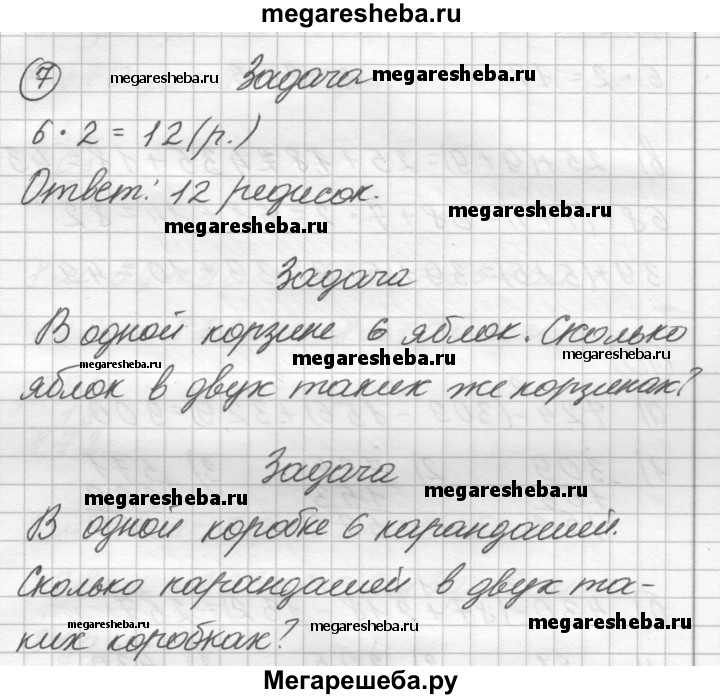 megaresheba.ru
7 megaresheba.ru Задача megaresheba.ru
6 · 2 = 12 (р.)
Ответ: 12 редисок.
megaresheba.ru megaresheba.ru
Задача
В одной корзине 6 яблок. Сколько
megaresheba.ru megaresheba.ru megaresheba.ru
яблок в двух таких же корзинах?
Задача
megaresheba.ru megaresheba.ru
В одной коробке 6 карандашей.
Сколько карандашей в двух та-
megaresheba.ru megaresheba.ru megaresheba.ru
ких коробках?
Мегарешеба.ру